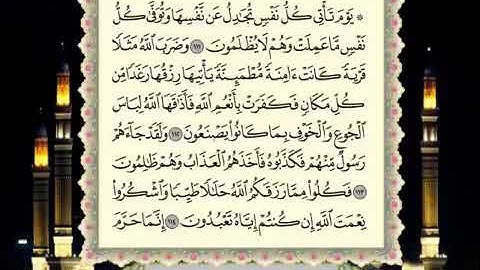 ۞ يَوْمَ تَأْتِي كُلُّ نَفْسٍ تُجَـٰدِلُ عَن نَّفْسِهَا وَتُوَفَّىٰ كُلُّ
نَفْسٍ مَّا عَمِلَتْ وَهُمْ لَا يُظْلَمُونَ ١١١ وَضَرَبَ ٱللَّهُ مَثَلًا
قَرْيَةً كَانَتْ ءَامِنَةً مُّطْمَئِنَّةً يَأْتِيهَا رِزْقُهَا رَغَدًا مِّن
كُلِّ مَكَانٍ فَكَفَرَتْ بِأَنْعُمِ ٱللَّهِ فَأَذَٰقَهَا ٱللَّهُ لِبَاسَ
ٱلْجُوعِ وَٱلْخَوْفِ بِمَا كَانُوا۟ يَصْنَعُونَ ١١٢ وَلَقَدْ جَآءَهُمْ
رَسُولٌ مِّنْهُمْ فَكَذَّبُوهُ فَأَخَذَهُمُ ٱلْعَذَابُ وَهُمْ ظَـٰلِمُونَ
١١٣ فَكُلُوا۟ مِمَّا رَزَقَكُمُ ٱللَّهُ حَلَـٰلًا طَيِّبًا وَٱشْكُرُوا۟
نِعْمَتَ ٱللَّهِ إِن كُنتُمْ إِيَّاهُ تَعْبُدُونَ ١١٤ إِنَّمَا حَرَّمَ